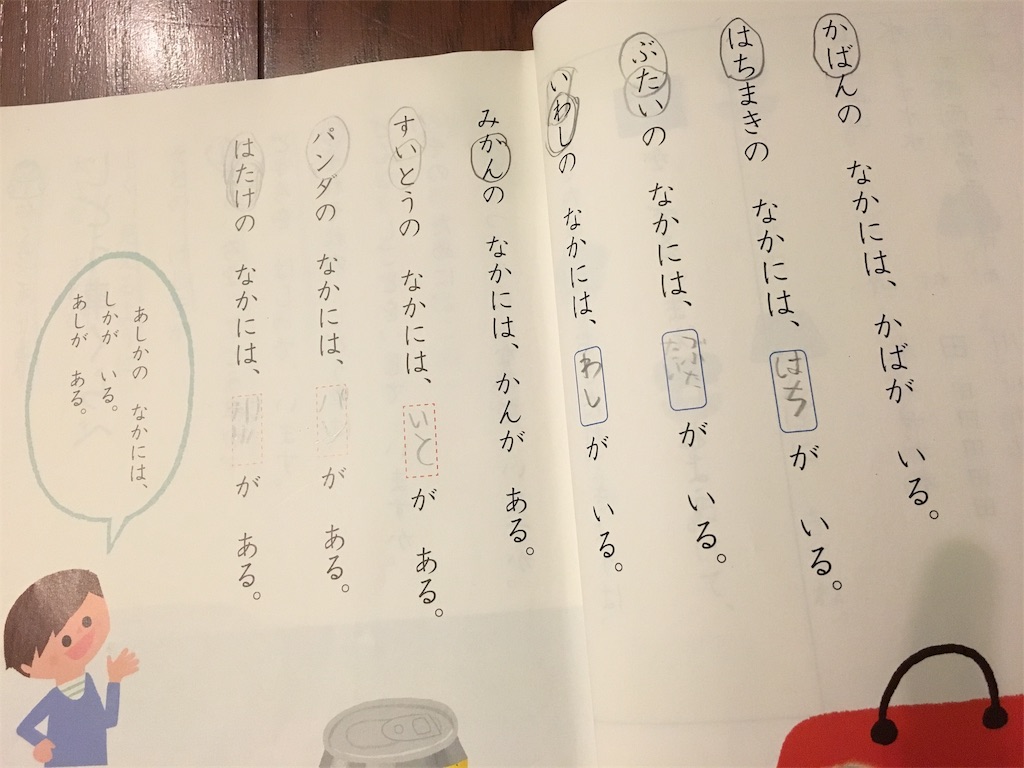 かばんの なかには、かばが いる。
はちまきの なかには、はちが いる。
ぶたいの なかには、ぶたが いる。
いわしの なかには、わしが いる。
みかんの なかには、かんが ある。
すいとうの なかには、いとが ある。
パンダの なかには、パンが ある。
はたけの なかには、が ある。
あしかの なかには、
しかが いる。
あしが ある。